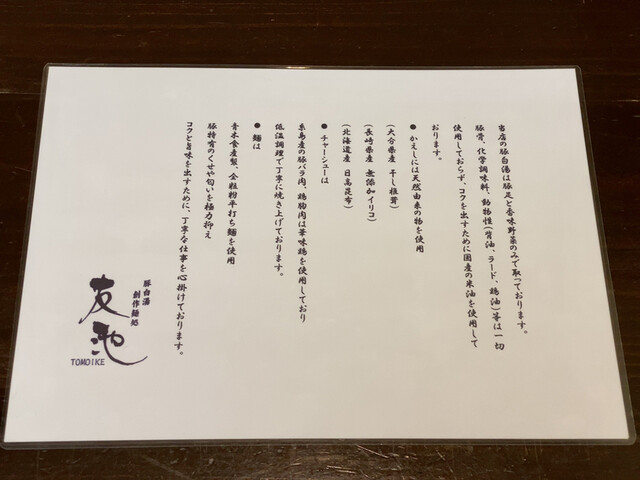 当店の豚白湯は豚足と香味野菜のみで取っております。
豚骨、化学調味料、動物性(背油、ラード、鶏油)等は一切
使用しておらず、コクを出すために国産の米油を使用して
おります。
● かえしには天然由来の物を使用
(大分県産 干し椎茸)
(長崎県産 無添加イリコ)
(北海道産 日高昆布)
● チャーシューは
糸島産の豚バラ肉、鶏胸肉は華味鶏を使用しており
低温調理で丁寧に焼き上げております。
● 麺は
青木食産製、全粒粉平打ち麺を使用
豚特有のくせや匂いを極力抑え
コクと旨味を出すために、丁寧な仕事を心掛けております。
豚白湯
創作麺処
友池
TOMOIKE